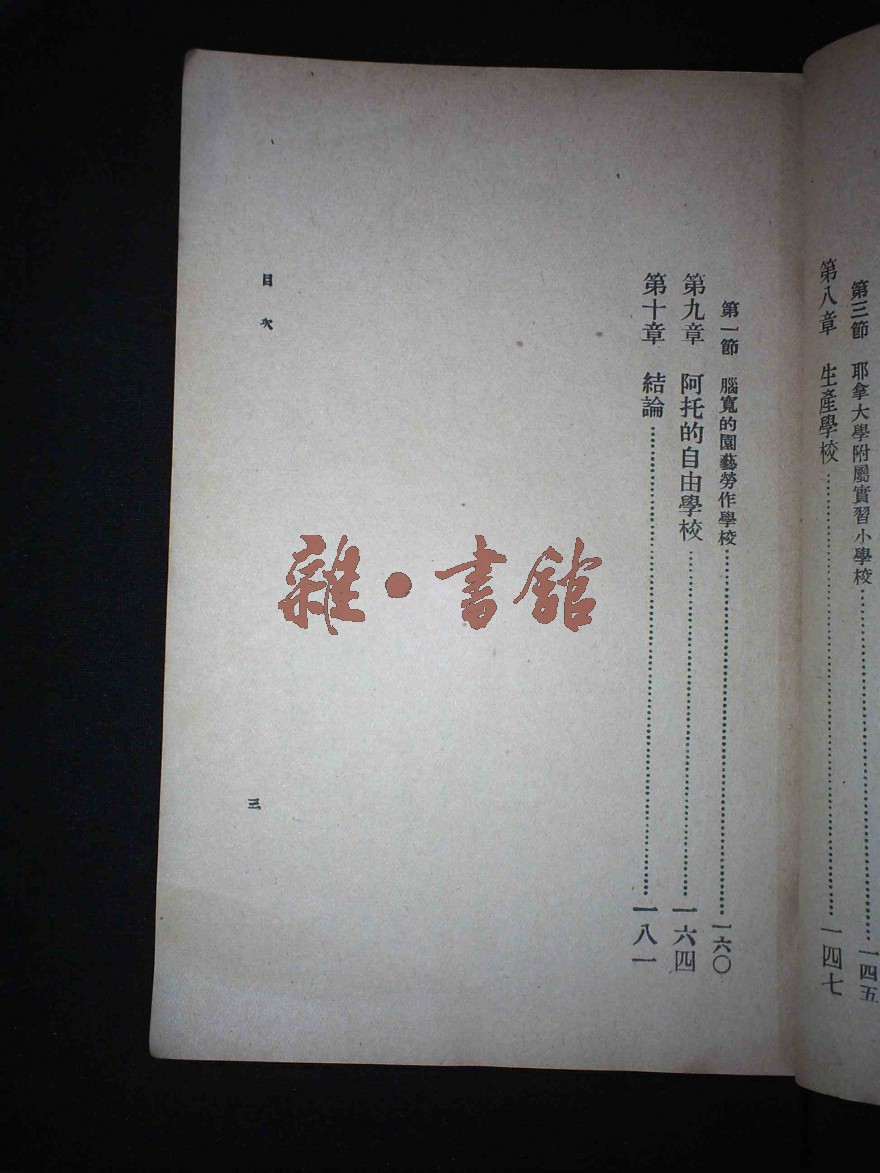 第三節 耶拿大學附屬實習小學校……一四五
第八章 生產學校……一四七
第一節 腦寬的園藝勞作學校……一六〇
第九章 阿托的自由學校……一六四
第十章 結論……一八一
目次
三
雜·書館